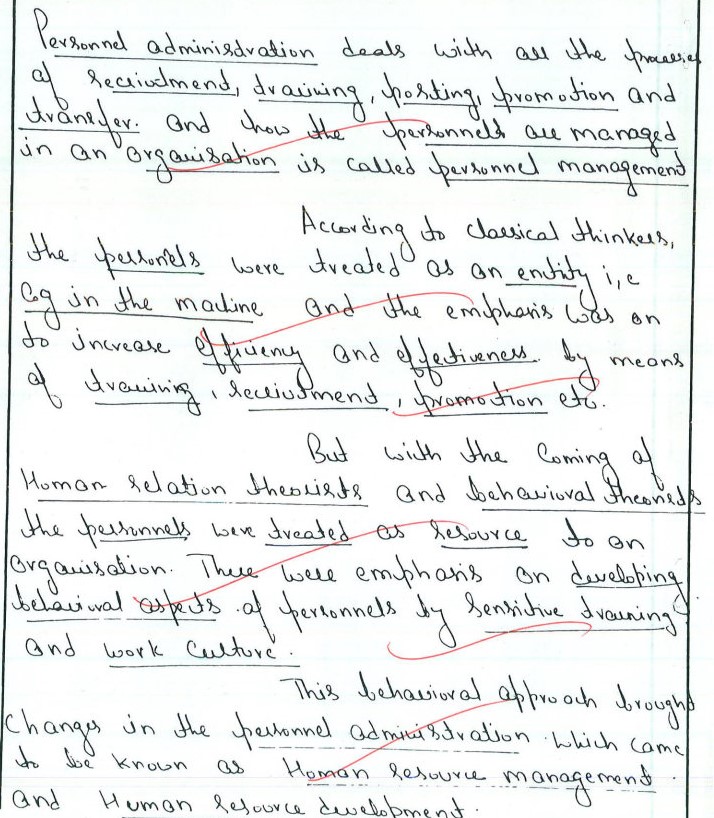 Personnel administration deals with all the processes
of recruitment, training, posting, promotion and
transfer. And how the personnels are managed
in an organisation is called personnel management
According to classical thinkers,
the personnels were treated as an entity i,e
Cog in the machine and the emphasis was on
to increase efficiency and effectiveness. by means
of training, recruitment, promotion etc.
But with the coming of
Human relation theorists and behavioural theorists
the personnels were treated as resource to an
organisation. There were emphasis on developing
behavioural aspects of personnels by sensitive training
and work culture.
This behavioral approach brought
changes in the personnel administration which came
to be known as Human resource management.
and Human resource development.